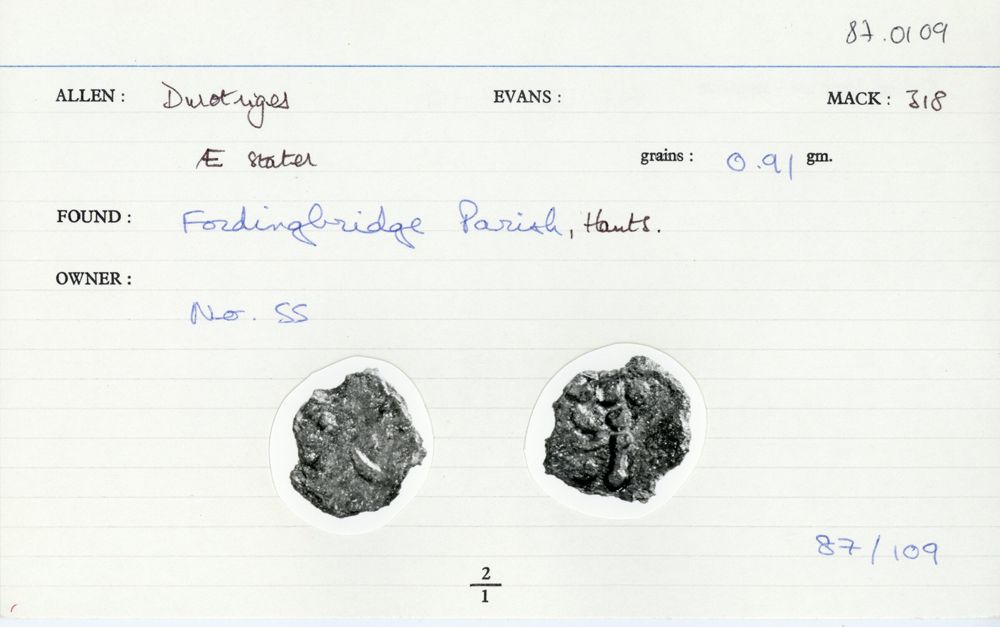 87.0109
ALLEN : Durotriges EVANS : MACK : 318
Æ stater grains : 0.91 gm.
FOUND : Fordingbridge Parish, Hants.
OWNER :
No. 55
87/109
2
1